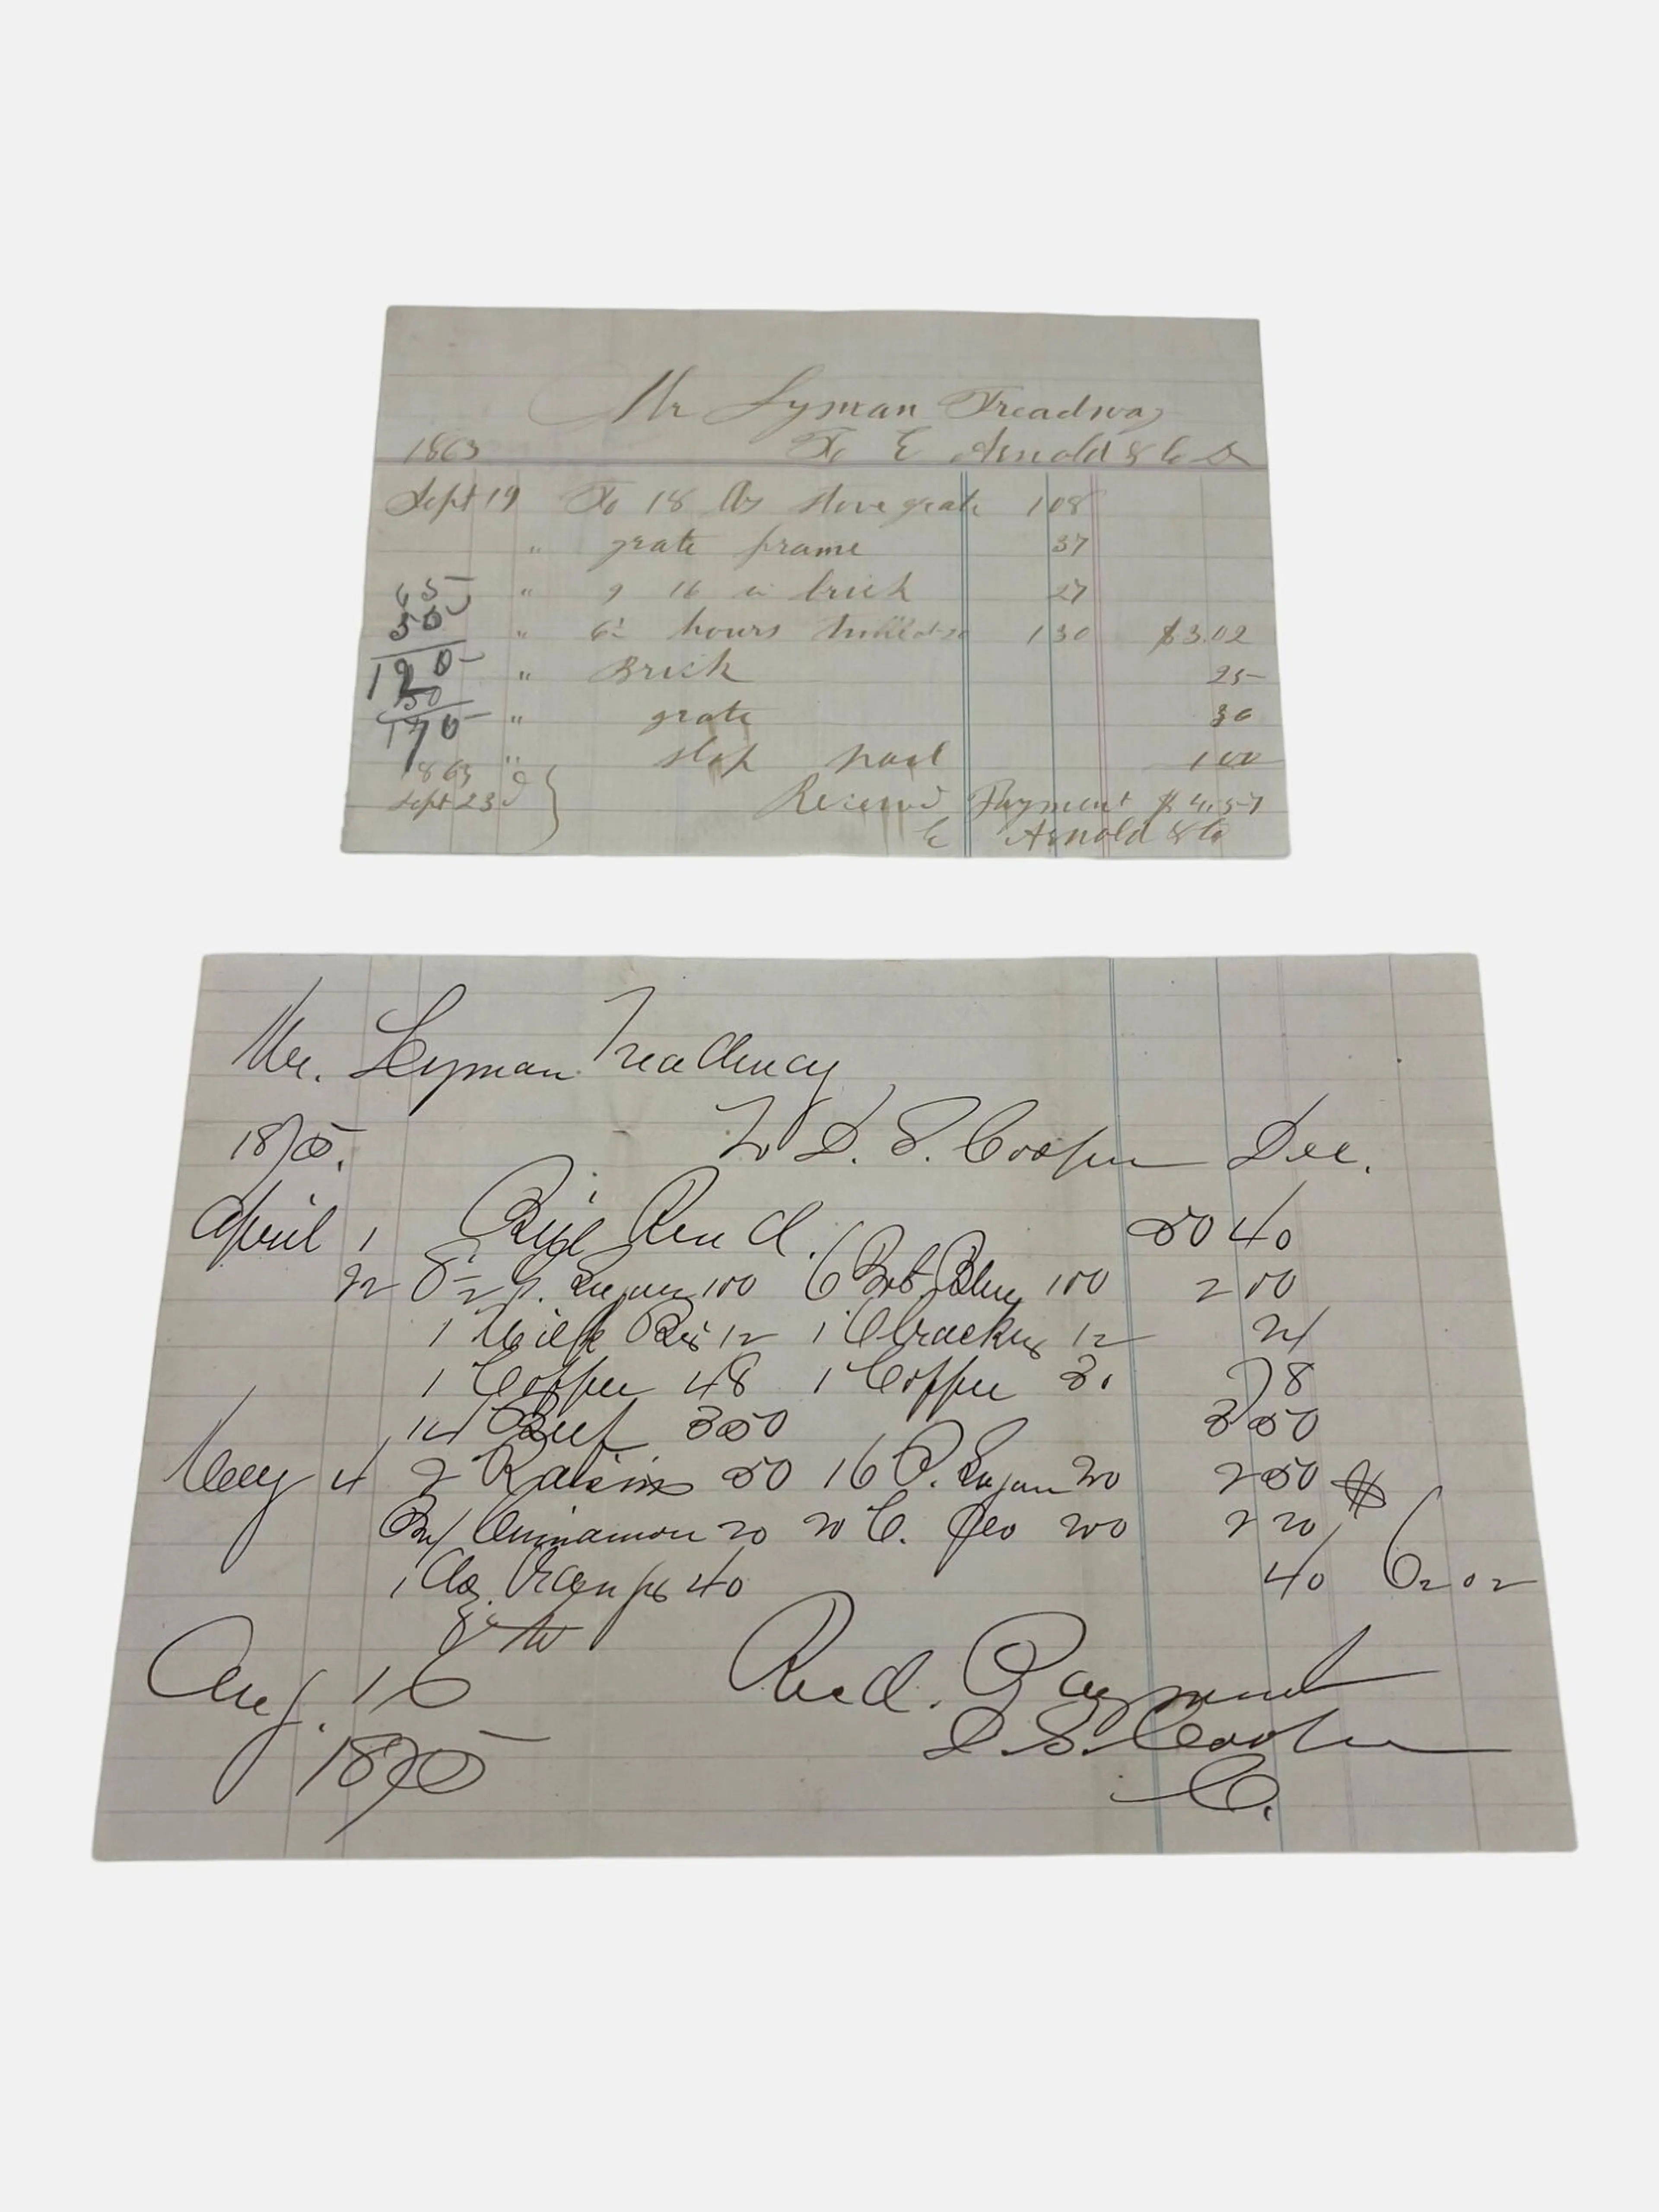 Mr Lyman Treadway
1863 To E Arnold & Co Dr
Sept 19 To 18 lbs stove grate 108
" grate frame 37
65 " 9 16 in brick 27
55 " 6½ hours 130 $3.02
120 " Brick 25
50 " grate 30
170 " slop pail 100
1863
Sept 23d } Received Payment $4.57
E Arnold & Co
Mr. Lyman Treadway
1875. To D. S. Cooper Dec.
April 1 Bill Rend. 50 40
22 8½ P. Sugar 100 6 Bot. Blug 100 2 00
1 Bis 12 1 Crackers 12 24
1 Coffee 48 1 Coffee 30 78
14 Beef 350 3 50
May 4 2 Raisins 50 16 P. Sugar 200 2 50 $
Bx Cinnamon 20 20 C. 200 2 20
1 doz. Oranges 40 40 62 02
Aug. 16 Recd. Payment
1875 D. S. Cooper
C.